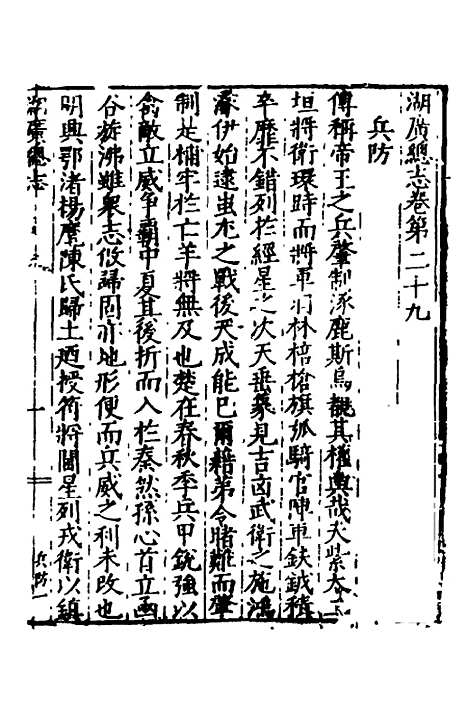 湖廣總志卷第二十九
兵防
傳稱帝王之兵肇制涿鹿斯烏覩其權輿哉夫紫太
垣將衛環時而將軍羽林棓槍旗弧騎官陣車鈇鉞積
卒靡不錯列於經星之次天垂象見吉凶武衛之施鴻
濛伊始逮蚩尤之戰後天成能巳爾藉第令睹難而肇
制是楯牢於亡羊將無及也楚在春秋季兵甲銳強以
立威爭覇中夏其後折而入於秦然孫心首立函
谷遊沸雖衆志攸歸固亦地形便而兵威之利未改也
明興鄂渚楊麾陳氏歸土廼授符將閫星列戎衛以鎮
兵防